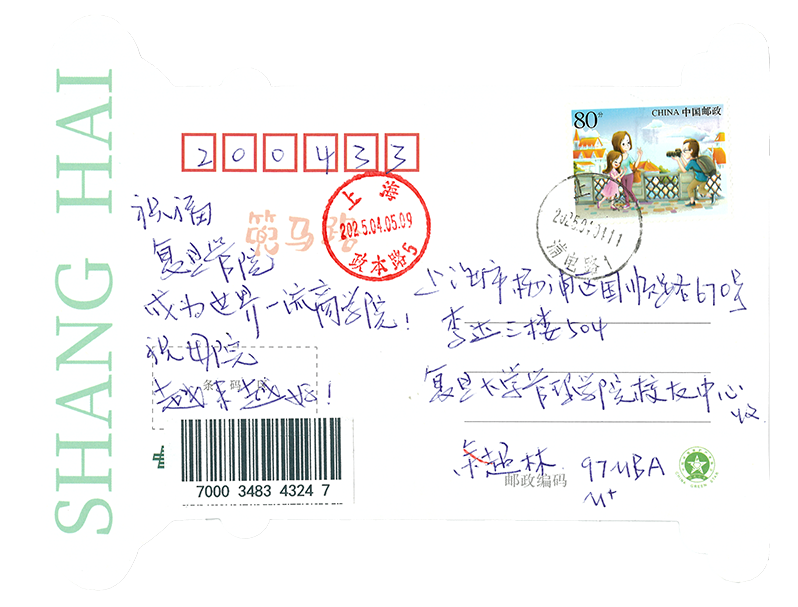 SHANG HAI
80分
CHINA 中国邮政
200433
上海
2025.04.05.09
政本路5
上
2025.04.04.11
浦电路1
祝福
复旦管院
成为世界一流商学院！
祝母院
越来越好！
上海市杨浦区国顺路670号
李达三楼504
复旦大学管理学院校友中心
收
97MBA
条码区
邮政编码
7000 3483 4324 7
CHINA GREEN STAR